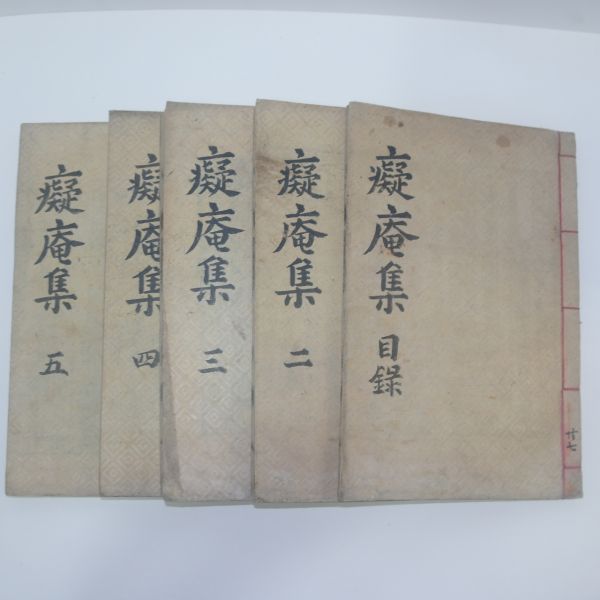 癡庵集 目錄
廿七
癡庵集 二
癡庵集 三
癡庵集 四
癡庵集 五